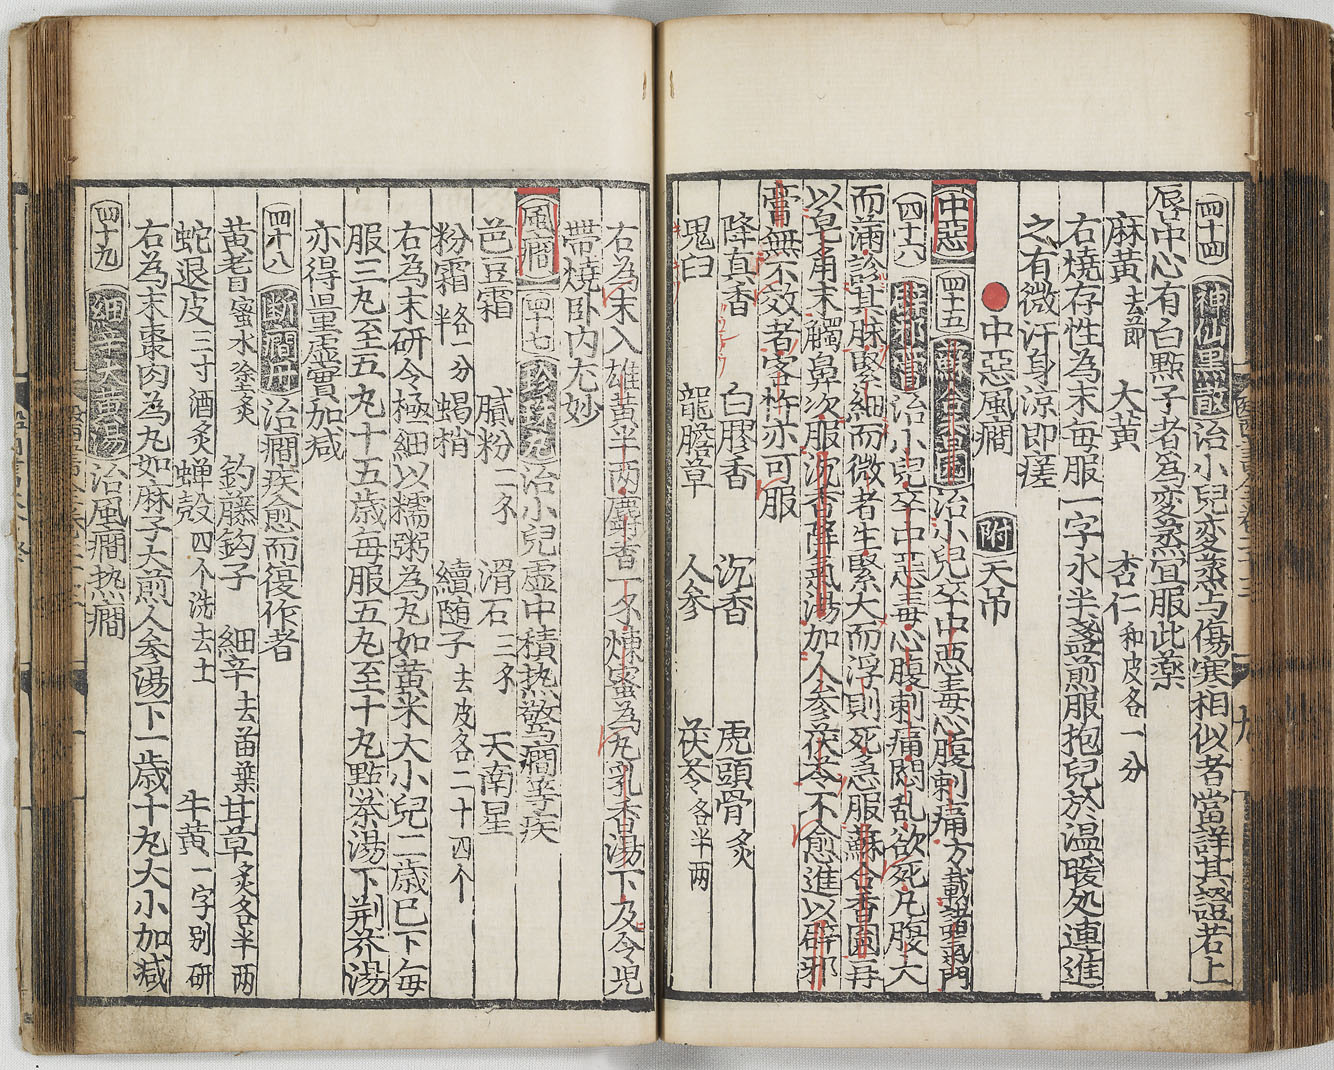 四十四 神仙黒散 治小兒変蒸与傷寒相似者當詳其證若上
唇中心有白點子者為変蒸宜服此藥
麻黃去節 大黃 杏仁和皮各一分
右燒存性為末每服一字水半盞煎服抱兒於温暖処連進
之有微汗身涼即瘥
中惡風癇 附 天吊
中惡 四十五 蘇合香圓 治小兒卒中惡毒心腹刺痛方載諸氣門
四十六 辟邪膏 治小兒卒中惡毒心腹刺痛悶乱欲死凡腹大
而滿診其脉緊細而微者生緊大而浮則死急服蘇合香圓再
以皂角末觸鼻次服沉香降氣湯加人参茯苓不愈進以辟邪
膏無不效者客忤亦可服
降真香 白膠香 沉香 虎頭骨炙
鬼臼 龍膽草 人参 茯苓各半两
右為末入雄黃半两麝香一錢煉蜜為丸乳香湯下及令児
帶燒卧内尤妙
風癇 四十七 珍珠丸 治小兒虚中積热驚癇等疾
芭豆霜 膩粉二錢 滑石三錢 天南星
粉霜各一分半 蝎梢 續随子去皮各二十四个
右為末研令極細以糯粥為丸如黃米大小兒二歲已下每
服三丸至五丸十五歲每服五丸至十丸點茶湯下荆芥湯
亦得量虚實加减
四十八 断癇丹 治癇疾愈而復作者
黃耆蜜水塗炙 釣藤鈎子 細辛去苗葉 甘草炙各半两
蛇退皮三寸酒炙 蝉殻四个洗去土 牛黃一字别研
右為末棗肉為丸如麻子大煎人参湯下一歲十丸大小加减
四十九 細辛大黃湯 治風癇热癇